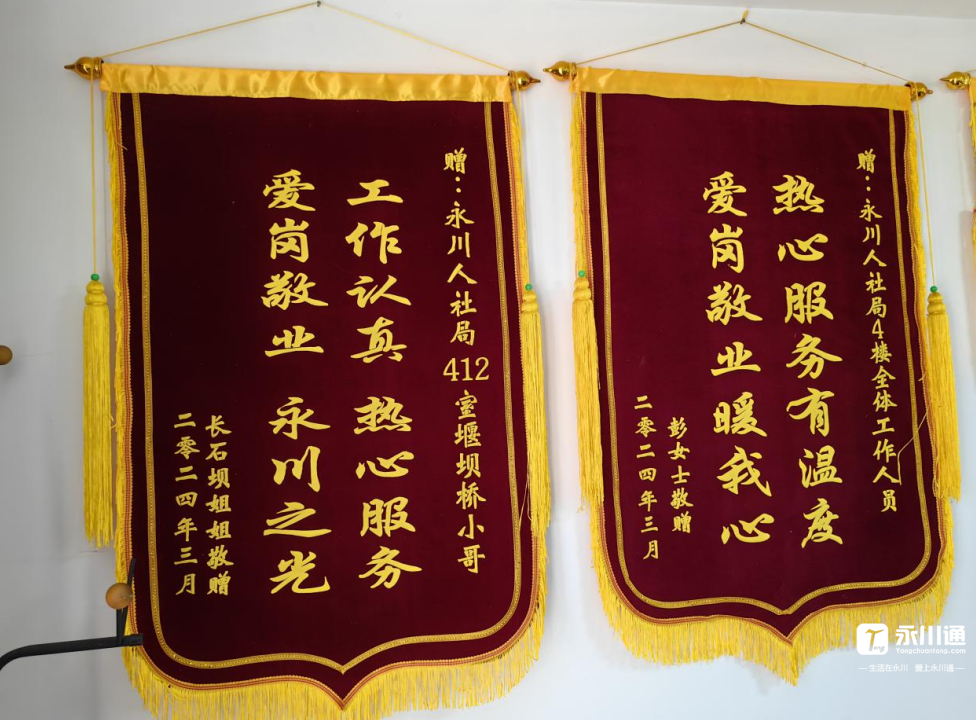 赠：永川人社局412室堰坝桥小哥
工作认真 热心服务
爱岗敬业 永川之光
长石坝姐姐敬赠
二零二四年三月
赠：永川人社局4楼全体工作人员
热心服务有温度
爱岗敬业暖我心
彭女士敬赠
二零二四年三月
永川通
Yongchuantong.com
生活在永川 爱上永川通